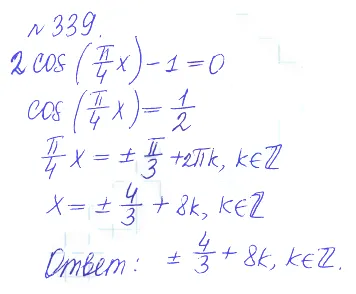 № 339.
2 cos (π/4 x) - 1 = 0
cos (π/4 x) = 1/2
π/4 x = ± π/3 + 2πk, k∈ℤ
x = ± 4/3 + 8k, k∈ℤ
Ответ: ± 4/3 + 8k, k∈ℤ.